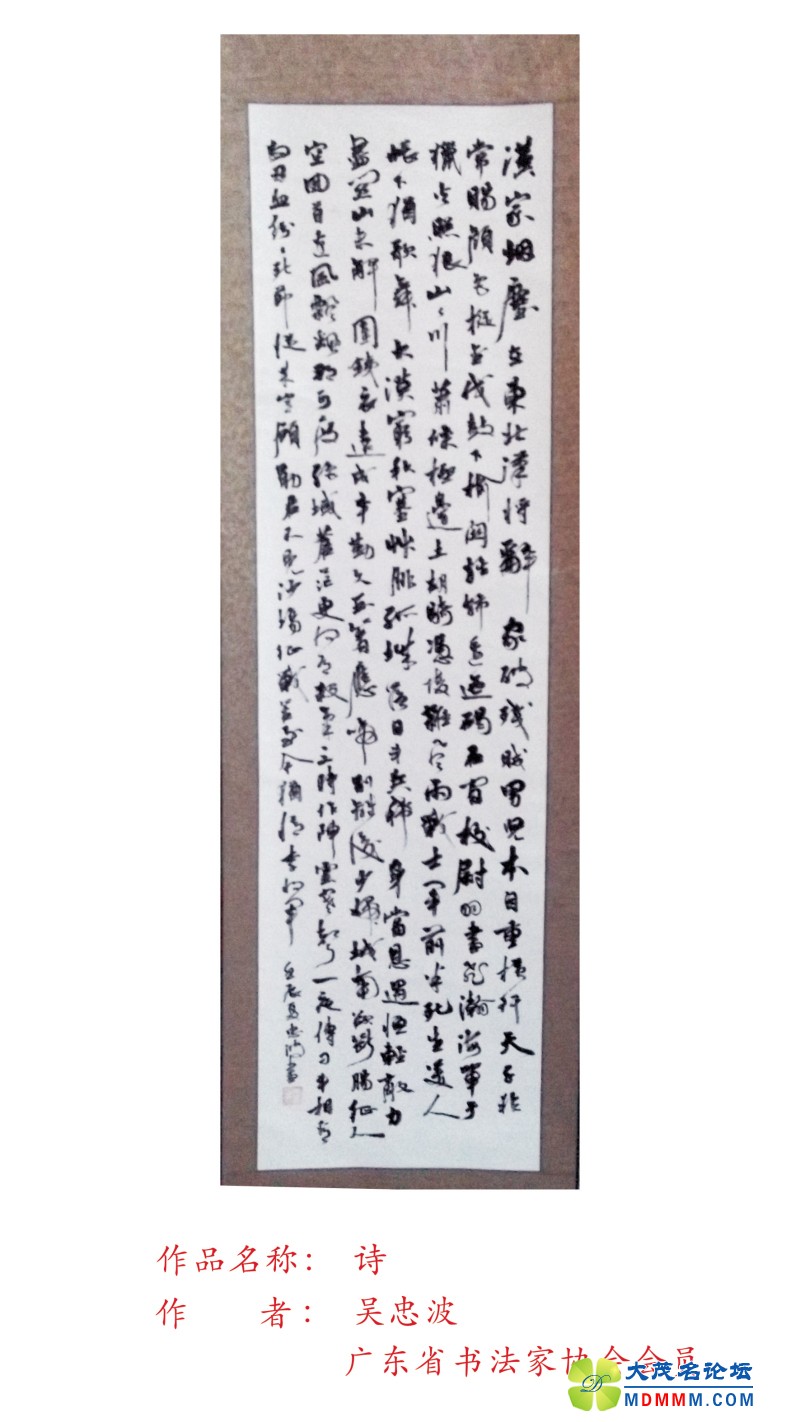 漢家烟塵在東北漢将辭家破残賊男児本自重横行天子非
常賜顔色摐金伐鼓下榆関旌旆逶迤碣石间校尉羽書飛瀚海单于
獵火照狼山々川蕭條極邊土胡騎憑陵雜風雨戰士軍前半死生美人
帳下猶歌舞大漠窮秋塞草腓孤城落日鬥兵稀身當恩遇恒輕敵力
盡関山未解圍鐵衣遠戍辛勤久玉箸應啼別離後少婦城南欲斷腸征人
空回首边風飄飖那可度絶域蒼茫更何有殺氣三時作陣雲寒聲一夜傳刁斗相看
白刃血紛々死節從来豈顧勲君不見沙場征戰苦至今猶憶李将軍 壬辰吴忠波書
作品名称： 诗
作 者： 吴忠波
广东省书法家协会会员
大茂名论坛
MDMMM.COM